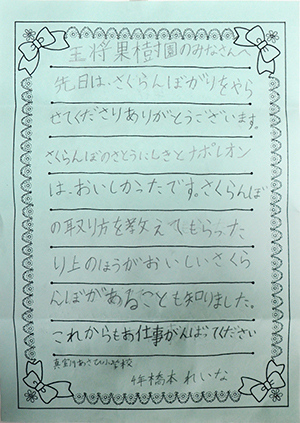 王将果樹園のみなさんへ
先日は、さくらんぼがりをやら
せてくださりありがとうございます。
さくらんぼのさとうにしきとナポレオン
は、おいしかったです。さくらんぼ
の取り方を教えてもらった
り上のほうがおいしいさくら
んぼがあることも知りました。
これからもお仕事がんばってください
小学校
4年橋本れいな